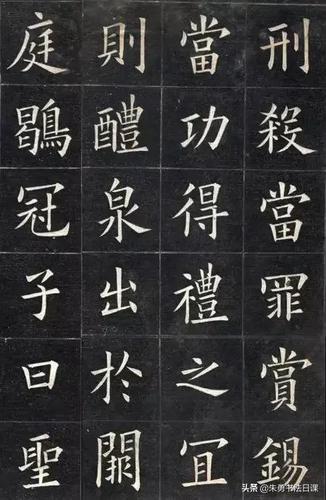 刑殺當罪賞錫
當功得禮之宜
則醴泉出於闕
庭鶡冠子曰聖
头条 @朱勇书法日课